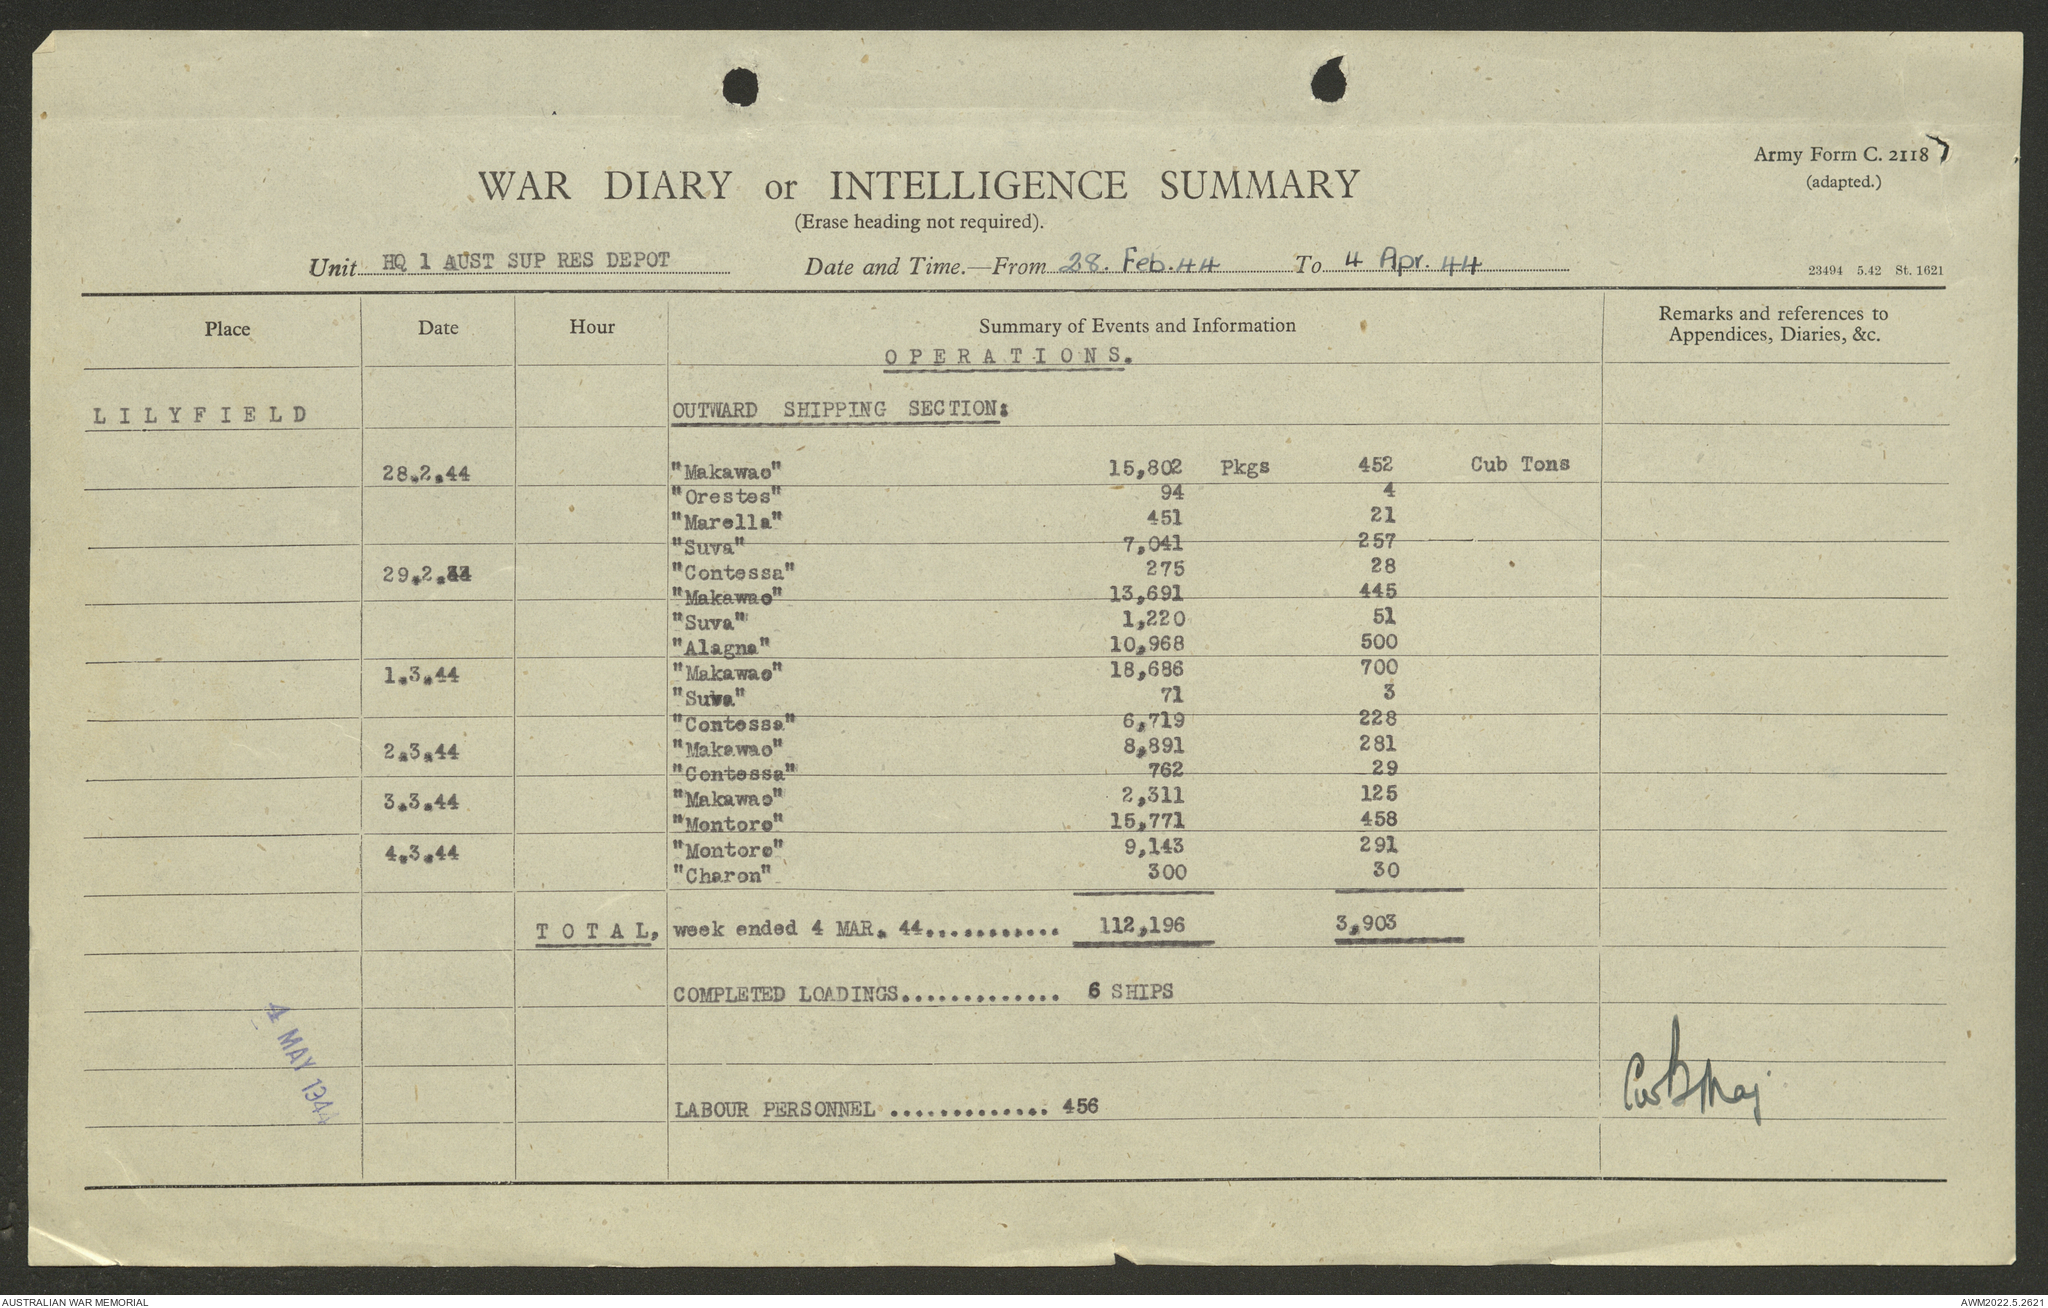 Army Form C. 2118
(adapted.)
WAR DIARY or INTELLIGENCE SUMMARY
(Erase heading not required).
Unit HQ 1 AUST SUP RES DEPOT Date and Time.—From 28. Feb. 44 To 4 Apr. 44
23494 5.42 St. 1621
Place Date Hour Summary of Events and Information Remarks and references to Appendices, Diaries, &c.
OPERATIONS.
LILYFIELD OUTWARD SHIPPING SECTION:
28.2.44 "Makawao" 15,802 Pkgs 452 Cub Tons
"Orestes" 94 4
"Marella" 451 21
"Suva" 7,041 257
29.2.44 "Contessa" 275 28
"Makawao" 13,691 445
"Suva" 1,220 51
"Alagna" 10,968 500
1.3.44 "Makawao" 18,686 700
"Suva" 71 3
"Contessa" 6,719 228
2.3.44 "Makawao" 8,891 281
"Contessa" 762 29
3.3.44 "Makawao" 2,311 125
"Montoro" 15,771 458
4.3.44 "Montoro" 9,143 291
"Charon" 300 30
TOTAL, week ended 4 MAR. 44........... 112,196 3,903
COMPLETED LOADINGS............. 6 SHIPS
4 MAY 1944
LABOUR PERSONNEL ............. 456
Maj
AUSTRALIAN WAR MEMORIAL
AWM2022.5.2621